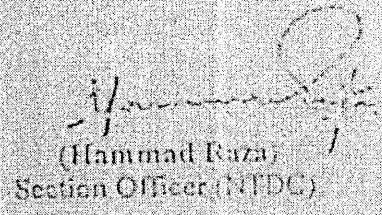 (Hammad Raza)
Section Officer (NTDC)